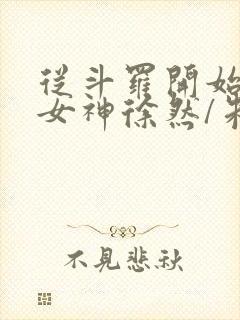 從斗羅開始
女神徐然/
不見悲秋